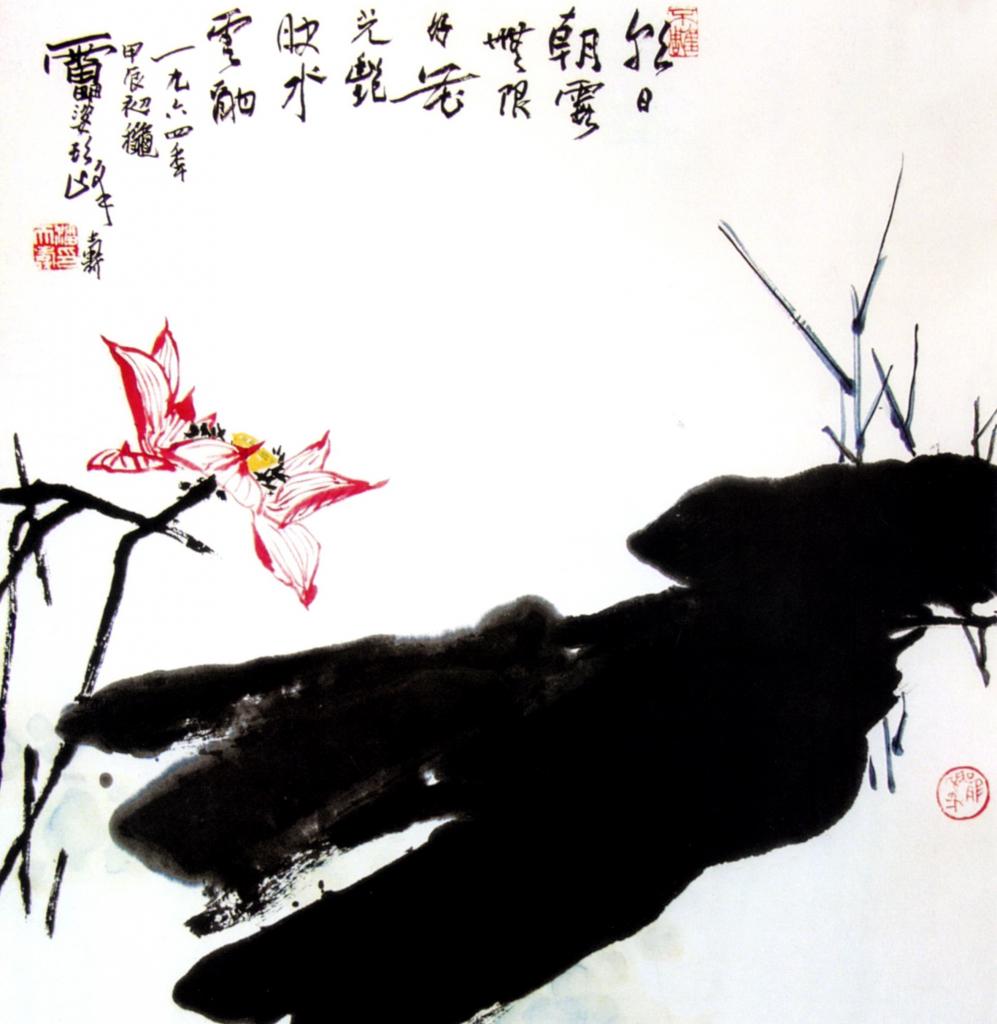 日
朝霞
無限
好花
光艷
映水
雲酣
一九六四年
甲辰初龝
雷婆頭峰
壽
潘天壽印